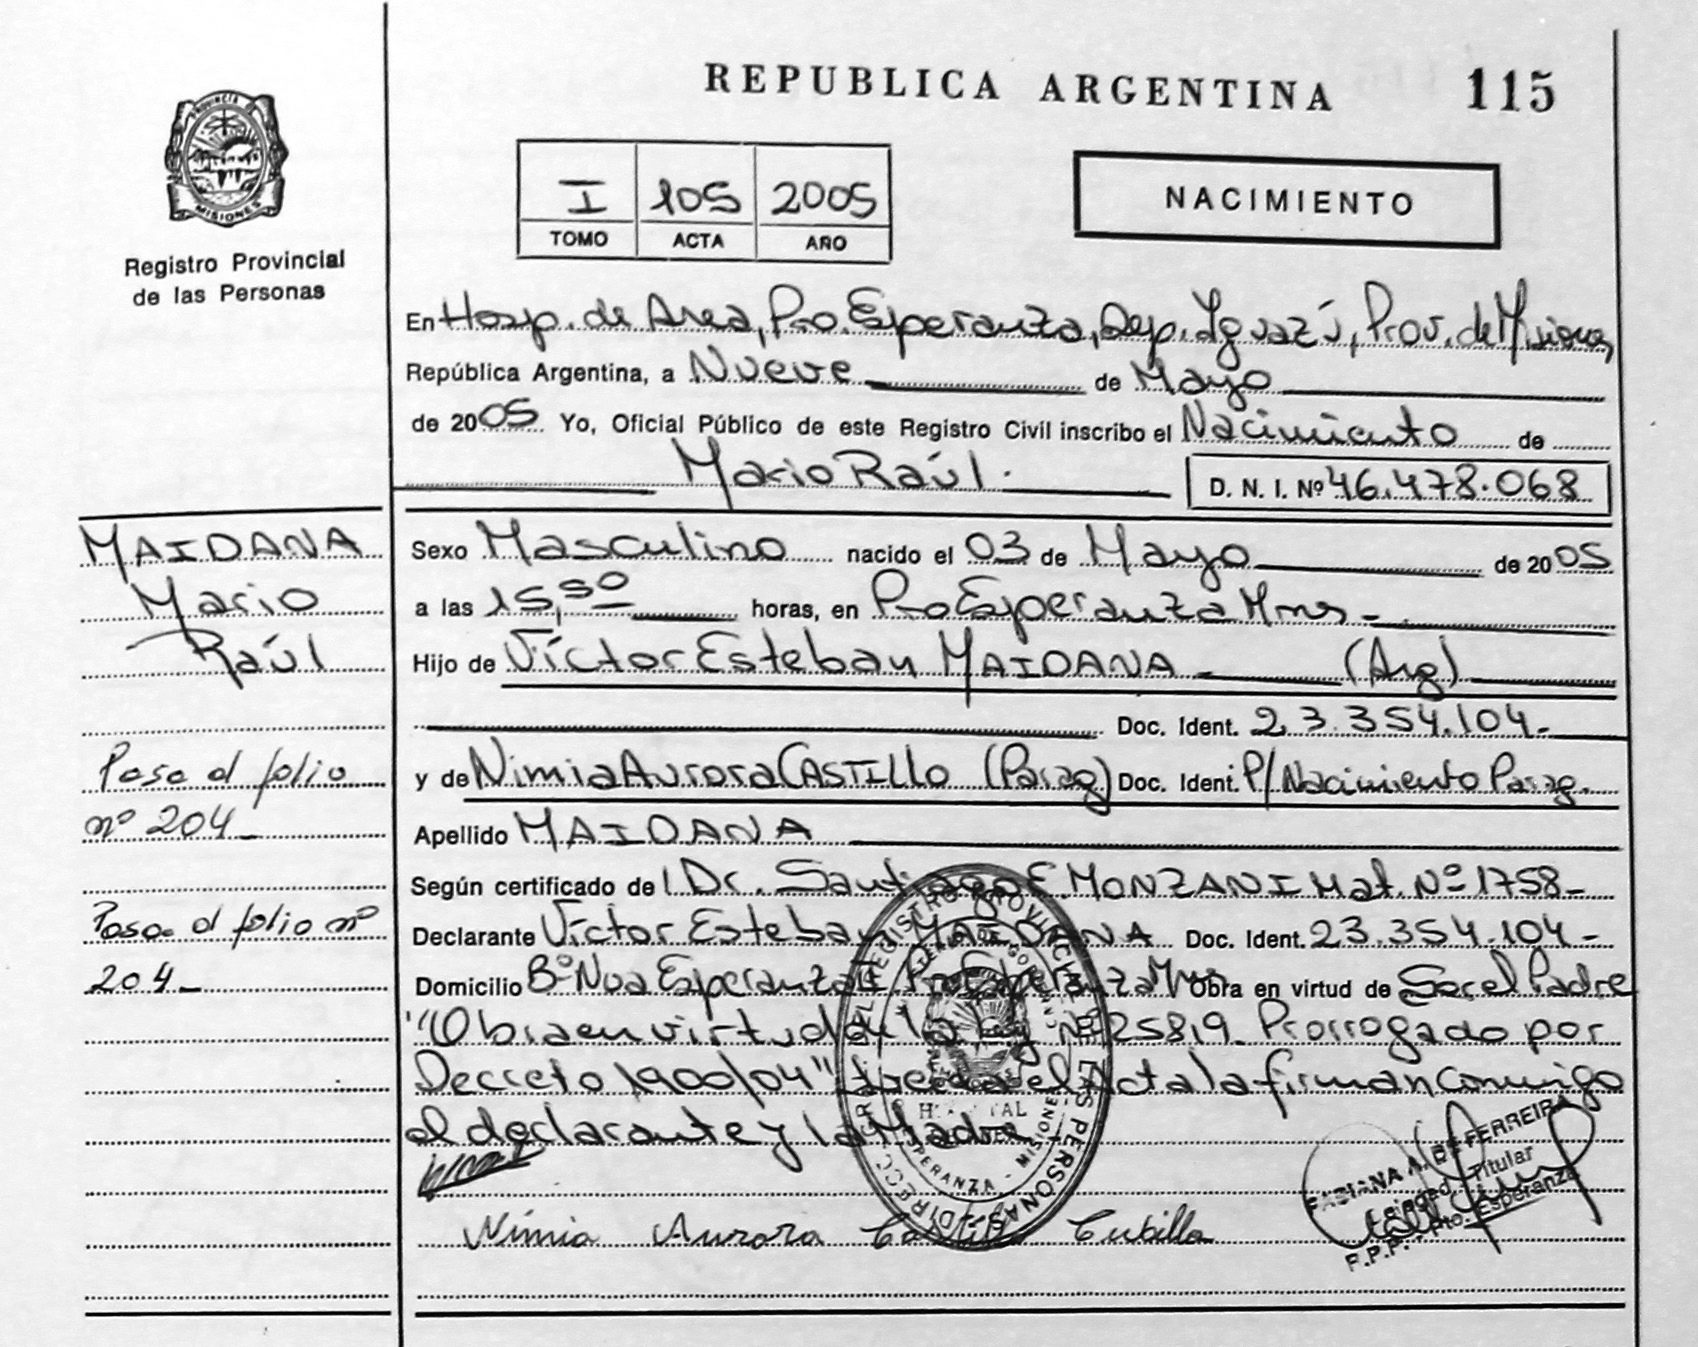 REPUBLICA ARGENTINA 115
PROVINCIA DE
MISIONES
Registro Provincial
de las Personas
I 105 2005
TOMO ACTA AÑO
NACIMIENTO
En Hosp. de Area, Pto. Esperanza, Dep. Iguazú, Prov. de Misiones,
República Argentina, a Nueve de Mayo
de 2005 Yo, Oficial Público de este Registro Civil inscribo el Nacimiento de
Mario Raúl. D. N. I. Nº 46.478.068
MAIDANA
Mario
Raúl
Sexo Masculino nacido el 03 de Mayo de 2005
a las 15,50 horas, en Pto Esperanza Mnes -
Hijo de Víctor Esteban MAIDANA (Arg)
Doc. Ident. 23.354.104.-
Pasa al folio
nº 204 -
y de Nimia Aurora CASTILLO (Parag) Doc. Ident. P/ Nacimiento Parag.
Apellido MAIDANA
Según certificado del Dr. Santiago E MONZANI Mat. Nº 1758-
Pasa al folio nº
204 -
Declarante Víctor Esteban MAIDANA Doc. Ident. 23.354.104-
Domicilio Bº Nva Esperanza Pto Esperanza Mnes Obra en virtud de Ser el Padre
"Obra en virtud de la Ley Nº 25819. Prorrogado por
Decreto 1900/04" Leeda el Acta la firman conmigo
el declarante y la Madre
Nimia Aurora Castillo Cubilla
FABIANA A. DE FERREIRA
Titular
R.P.P. Pto. Esperanza